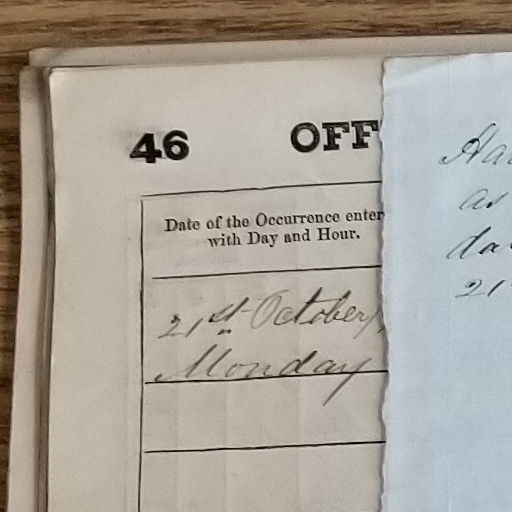 46 OFF
Date of the Occurrence enter
with Day and Hour.
21st October
Monday
Ha
as
da
21